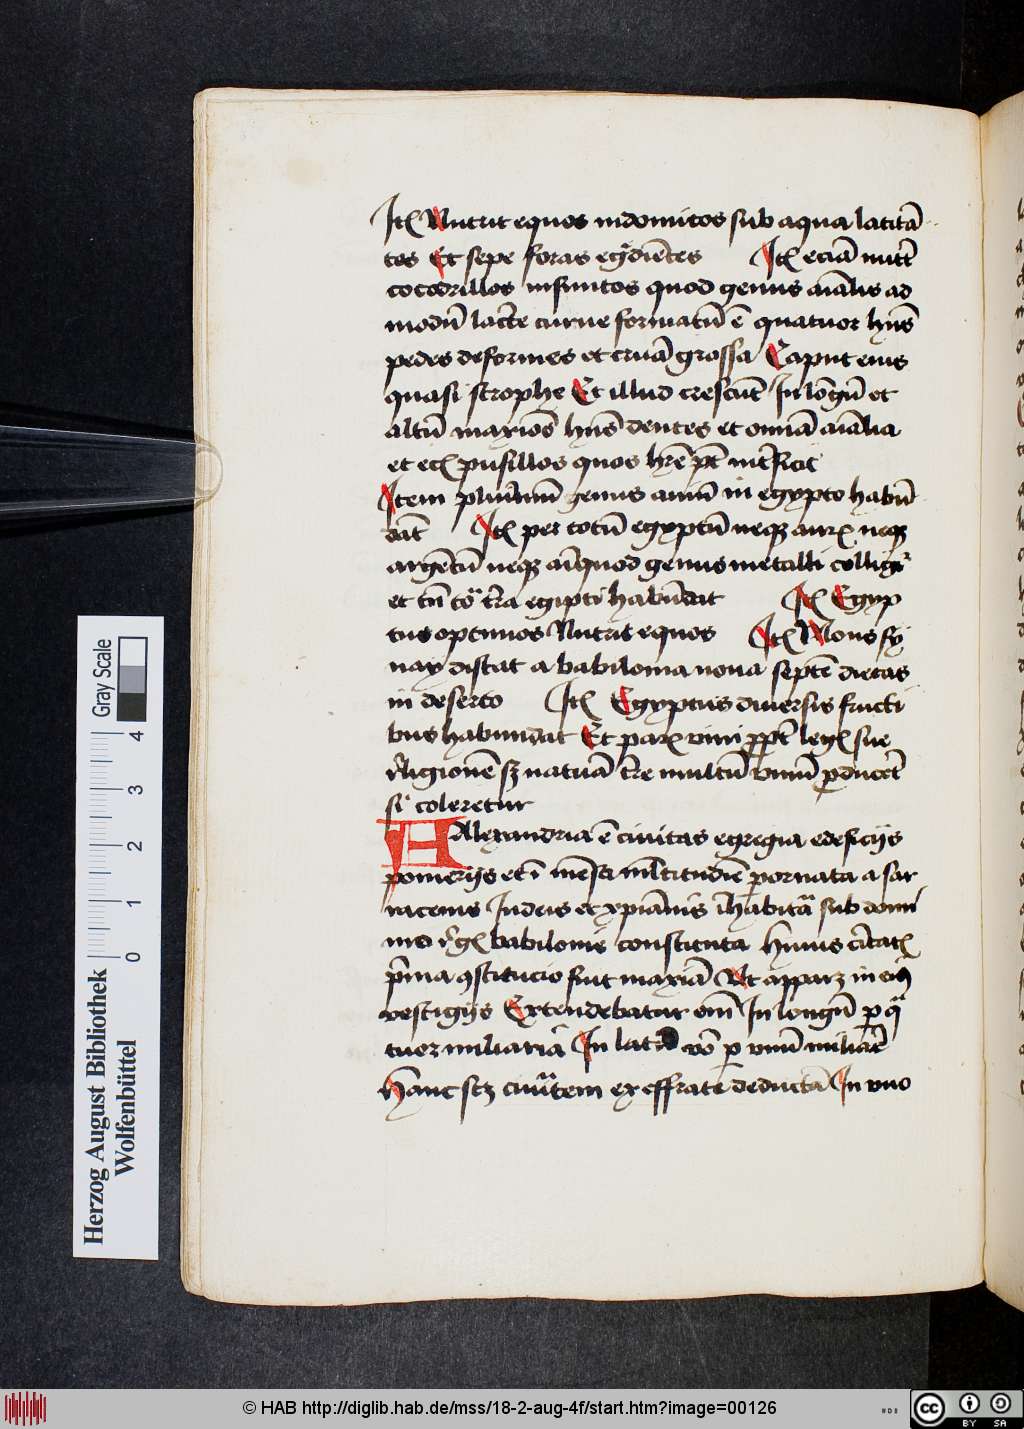 Itꝭ Nutrit equos indomitos sub aqua latitā
tes Et sepe foras egdiētes Itꝭ eciā nutt̄
cocodrillos infinitos quod genus aīalis ad
modū lacte curue formatū ē quatuor hn̄s
pedes deformes et crua grossa Caput eius
quasi scrophe Et illud crescūt In lōgū et
altū maxiōs hn̄s dentes et omiā aīalia
et ecꝭ pusillos quos hr̄e pt̄ int̄ficit
Item plurimū genus auiū in egypto habū
dāt Itꝭ per totū egyptū neqꝫ aurꝭ neqꝫ
argētū neqꝫ aliquod genus metalli colligit᷑
et tn̄ tō tr̄a egipti habūdat Itꝭ Egyp
tus optimos Nutrit equos Itꝭ Mons sy
nay distat a babilonia noua septē dietas
in deserto Itꝭ Egyptus diuersis fructi
bus habundat Et parꝭ vini ppt̄ legꝭ sue
religionē sꝫ naturā tr̄e multū vinū ꝓducet̄
si coleretur
Alexandria ē ciuitas egregia edeficijs
pomerijs et ī mēsti multitudiē pornata a sar
racenis Iudeis et xp̄ianis īhabitā sub domi
nio rgꝭ babilonie constituta huius ciuitatꝭ
pͥma ꝯstitucio fuit maxiā Ut apparꝫ in eiꝰ
vestigijs Extendebatur em̄ In longū ꝑ qͣ
tuor miliaria In lat vō ꝑ vnū miliare
Hanc scꝫ ciuitem ex effrate deductā In vno
Herzog August Bibliothek
Wolfenbüttel
Gray Scale
0 1 2 3 4
© HAB http://diglib.hab.de/mss/18-2-aug-4f/start.htm?image=00126
cc BY SA